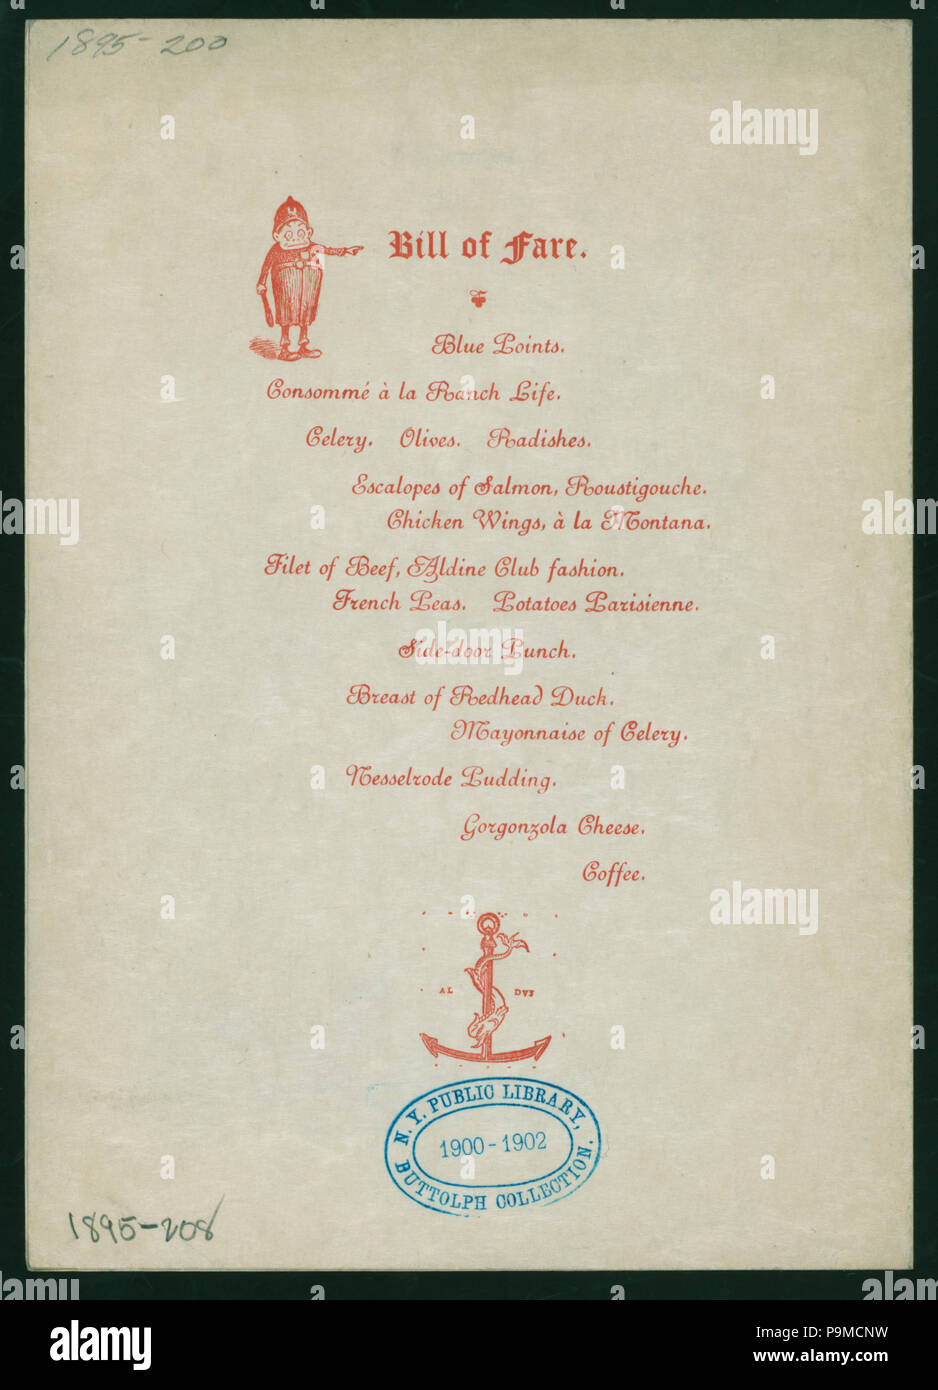 1895-200
Bill of Fare.
Blue Points.
Consommé à la Ranch Life.
Celery. Olives. Radishes.
Escalopes of Salmon, Roustigouche.
Chicken Wings, à la Montana.
Filet of Beef, Aldine Club fashion.
French Peas. Potatoes Parisienne.
Side-door Punch.
Breast of Redhead Duck.
Mayonnaise of Celery.
Nesselrode Pudding.
Gorgonzola Cheese.
Coffee.
AL DVS
N. Y. PUBLIC LIBRARY,
1900-1902
BUTTOLPH COLLECTION.
1895-208
alamy
alamy
Image ID: P9MCNW
www.alamy.com